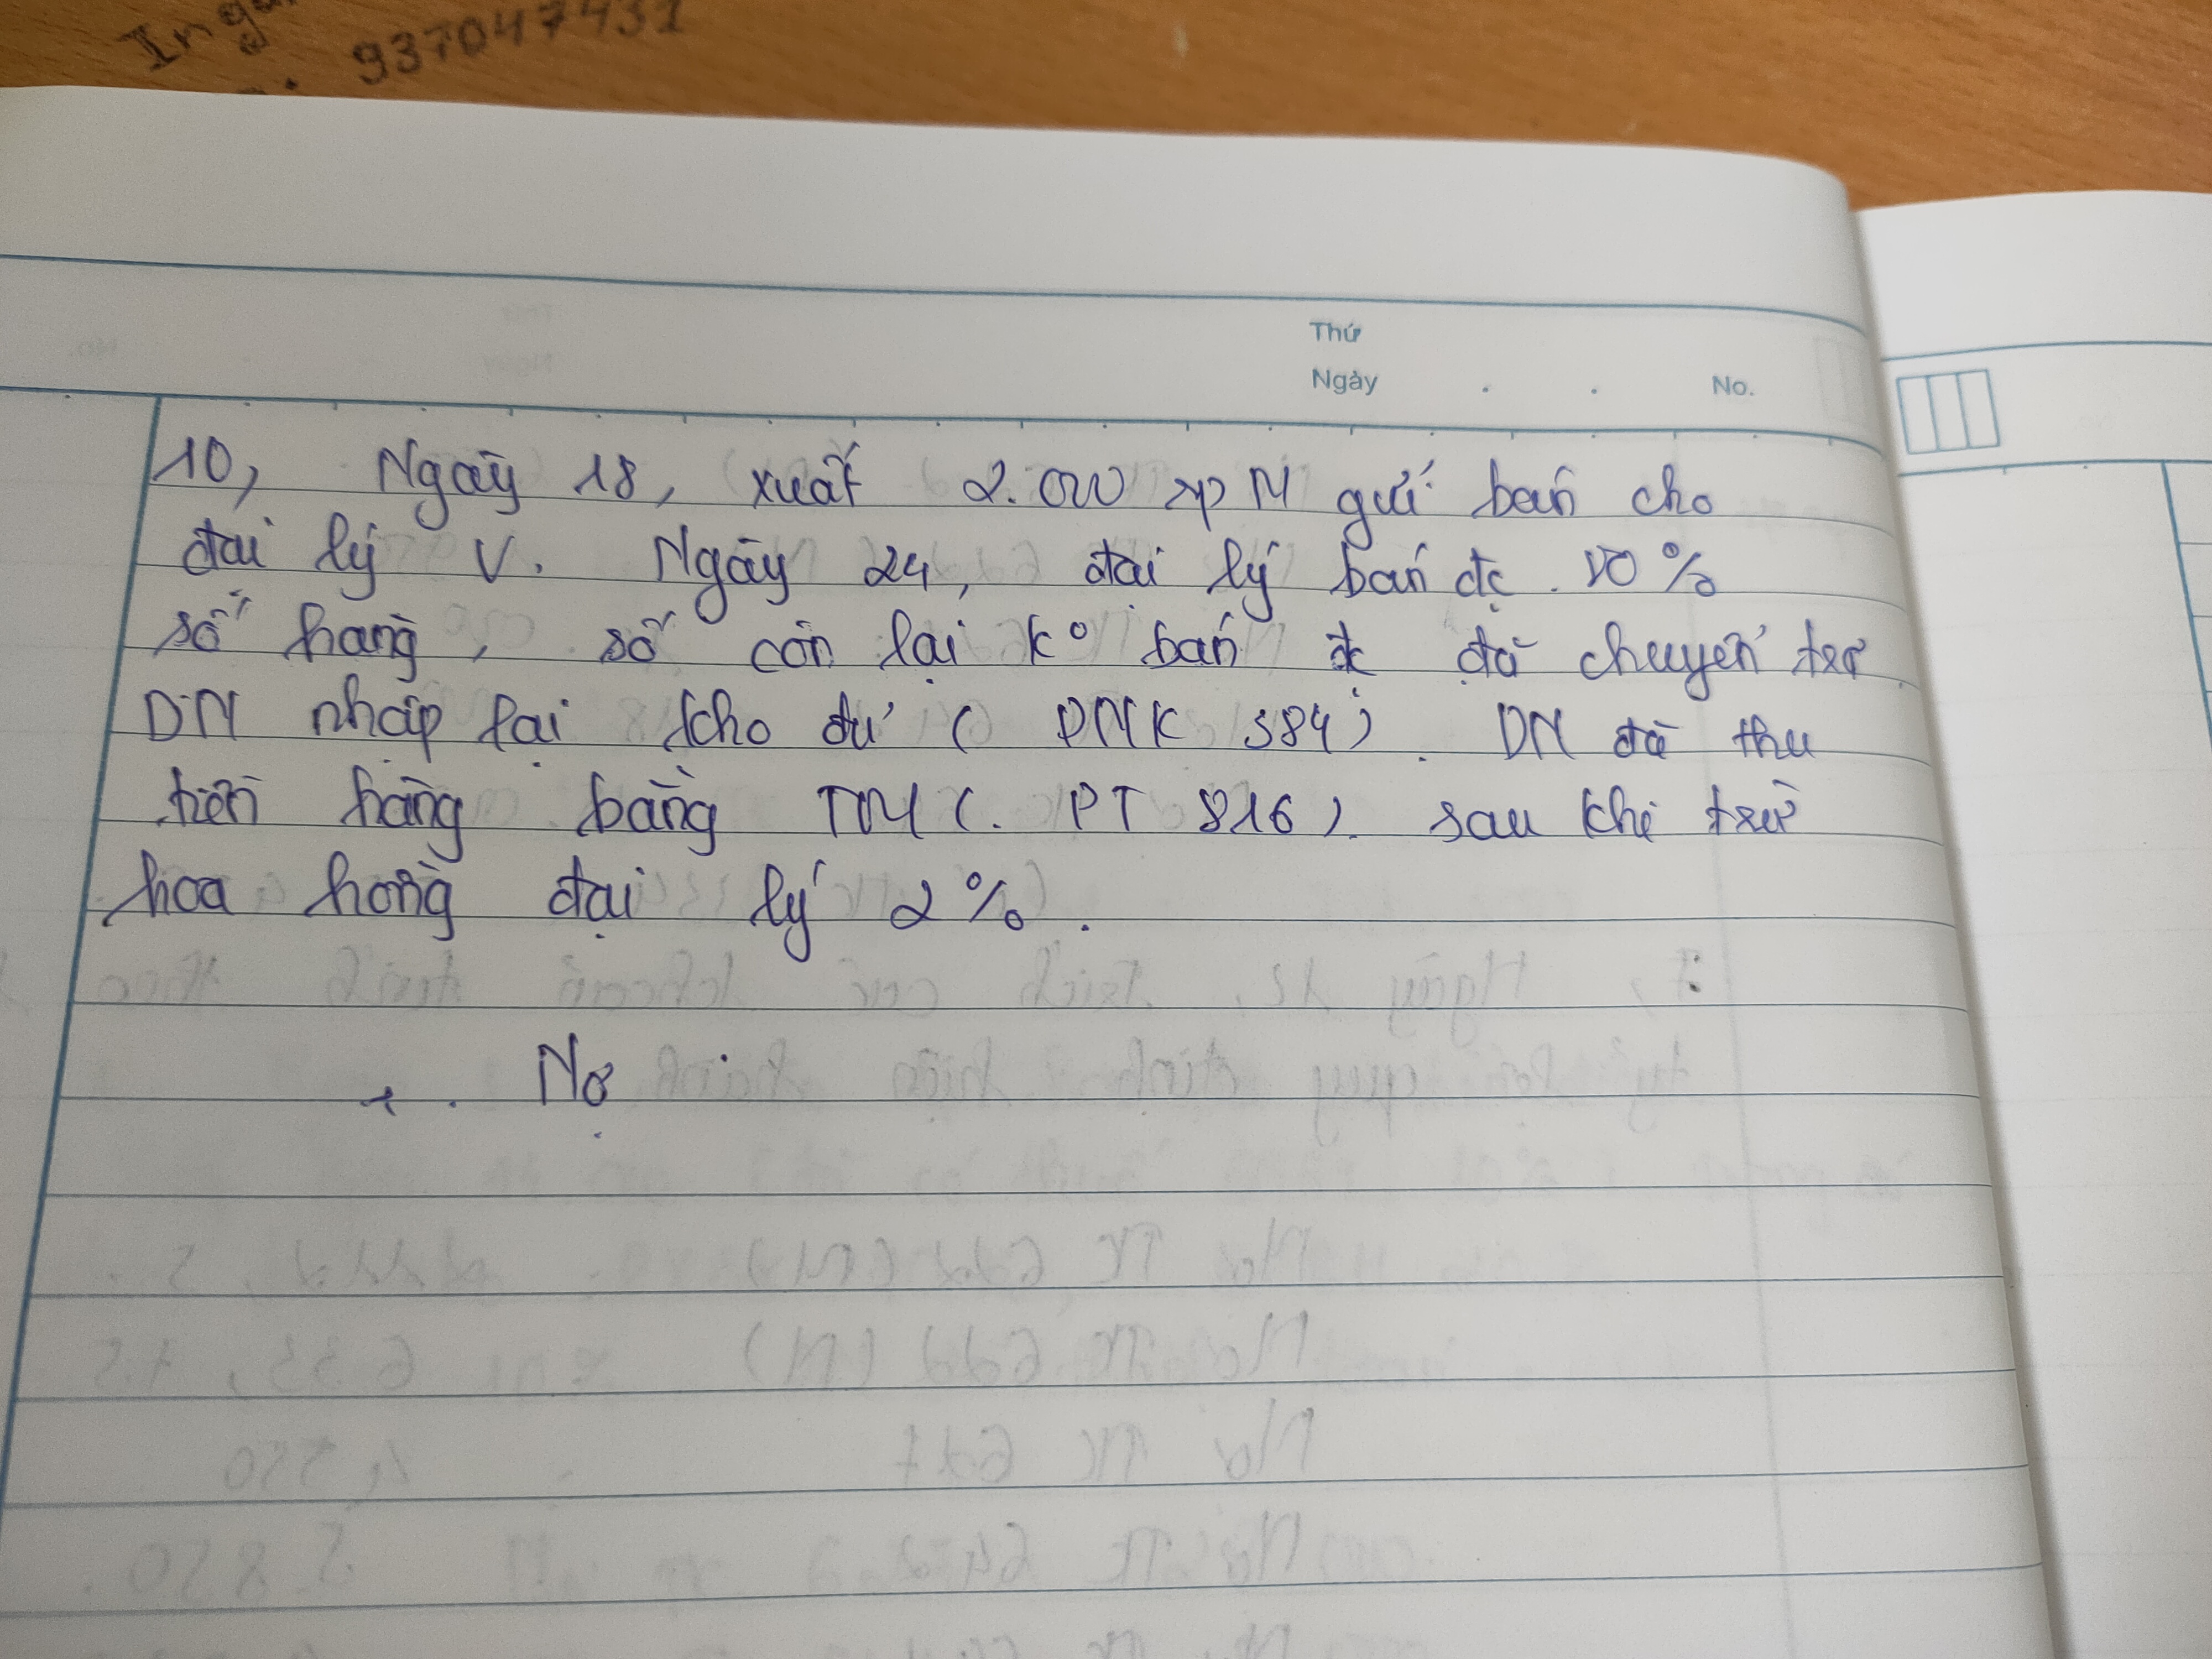 937047431
Thứ
Ngày . . No.
10, Ngày 18, xuất 2.000 sp N gửi bán cho
đại lý V. Ngày 24, đại lý bán đc 70%
số hàng, số còn lại k° bán đc đã chuyển trả
DN nhập lại kho đủ ( PNK 384). DN đã thu
tiền hàng bằng TM (. PT 816). sau khi trừ
hoa hồng đại lý 2%.
+. Nợ